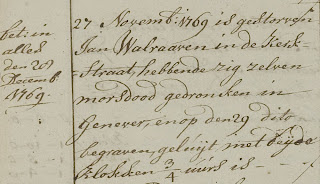 bet: in
alles
den 20
Decemb.
1769.
27 Novemb: 1769 is gestorven
Jan Walraaven in de Kerk-
Straat, hebbende zig zelven
morsdood gedroncken in
Genever, en op den 29 dito
begraven, geluijt met beijde
klokken 3/4 uurs is -